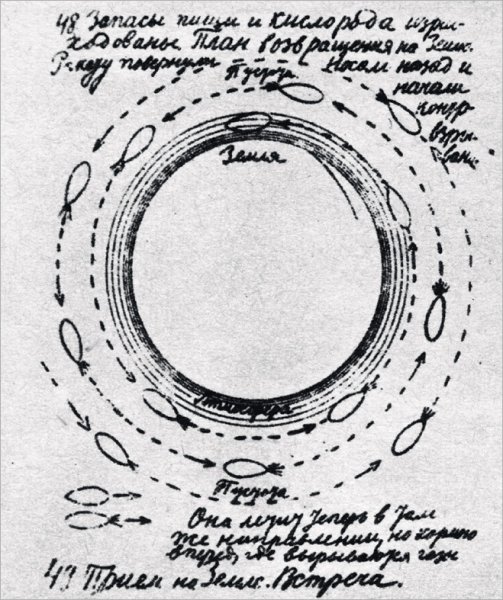 48 Запасы пищи и кислорода израс-
ходованы. План возвращения на Земл.
Ракету повернули Носом назад и
Пустота. начали
контр-
взры-
вани
Земля
Атмосфера
Пустота.
Она летит теперь в том
же направлении, но кормою
вперед, где вырываются газы
49 Прием на Земле. Встреча.